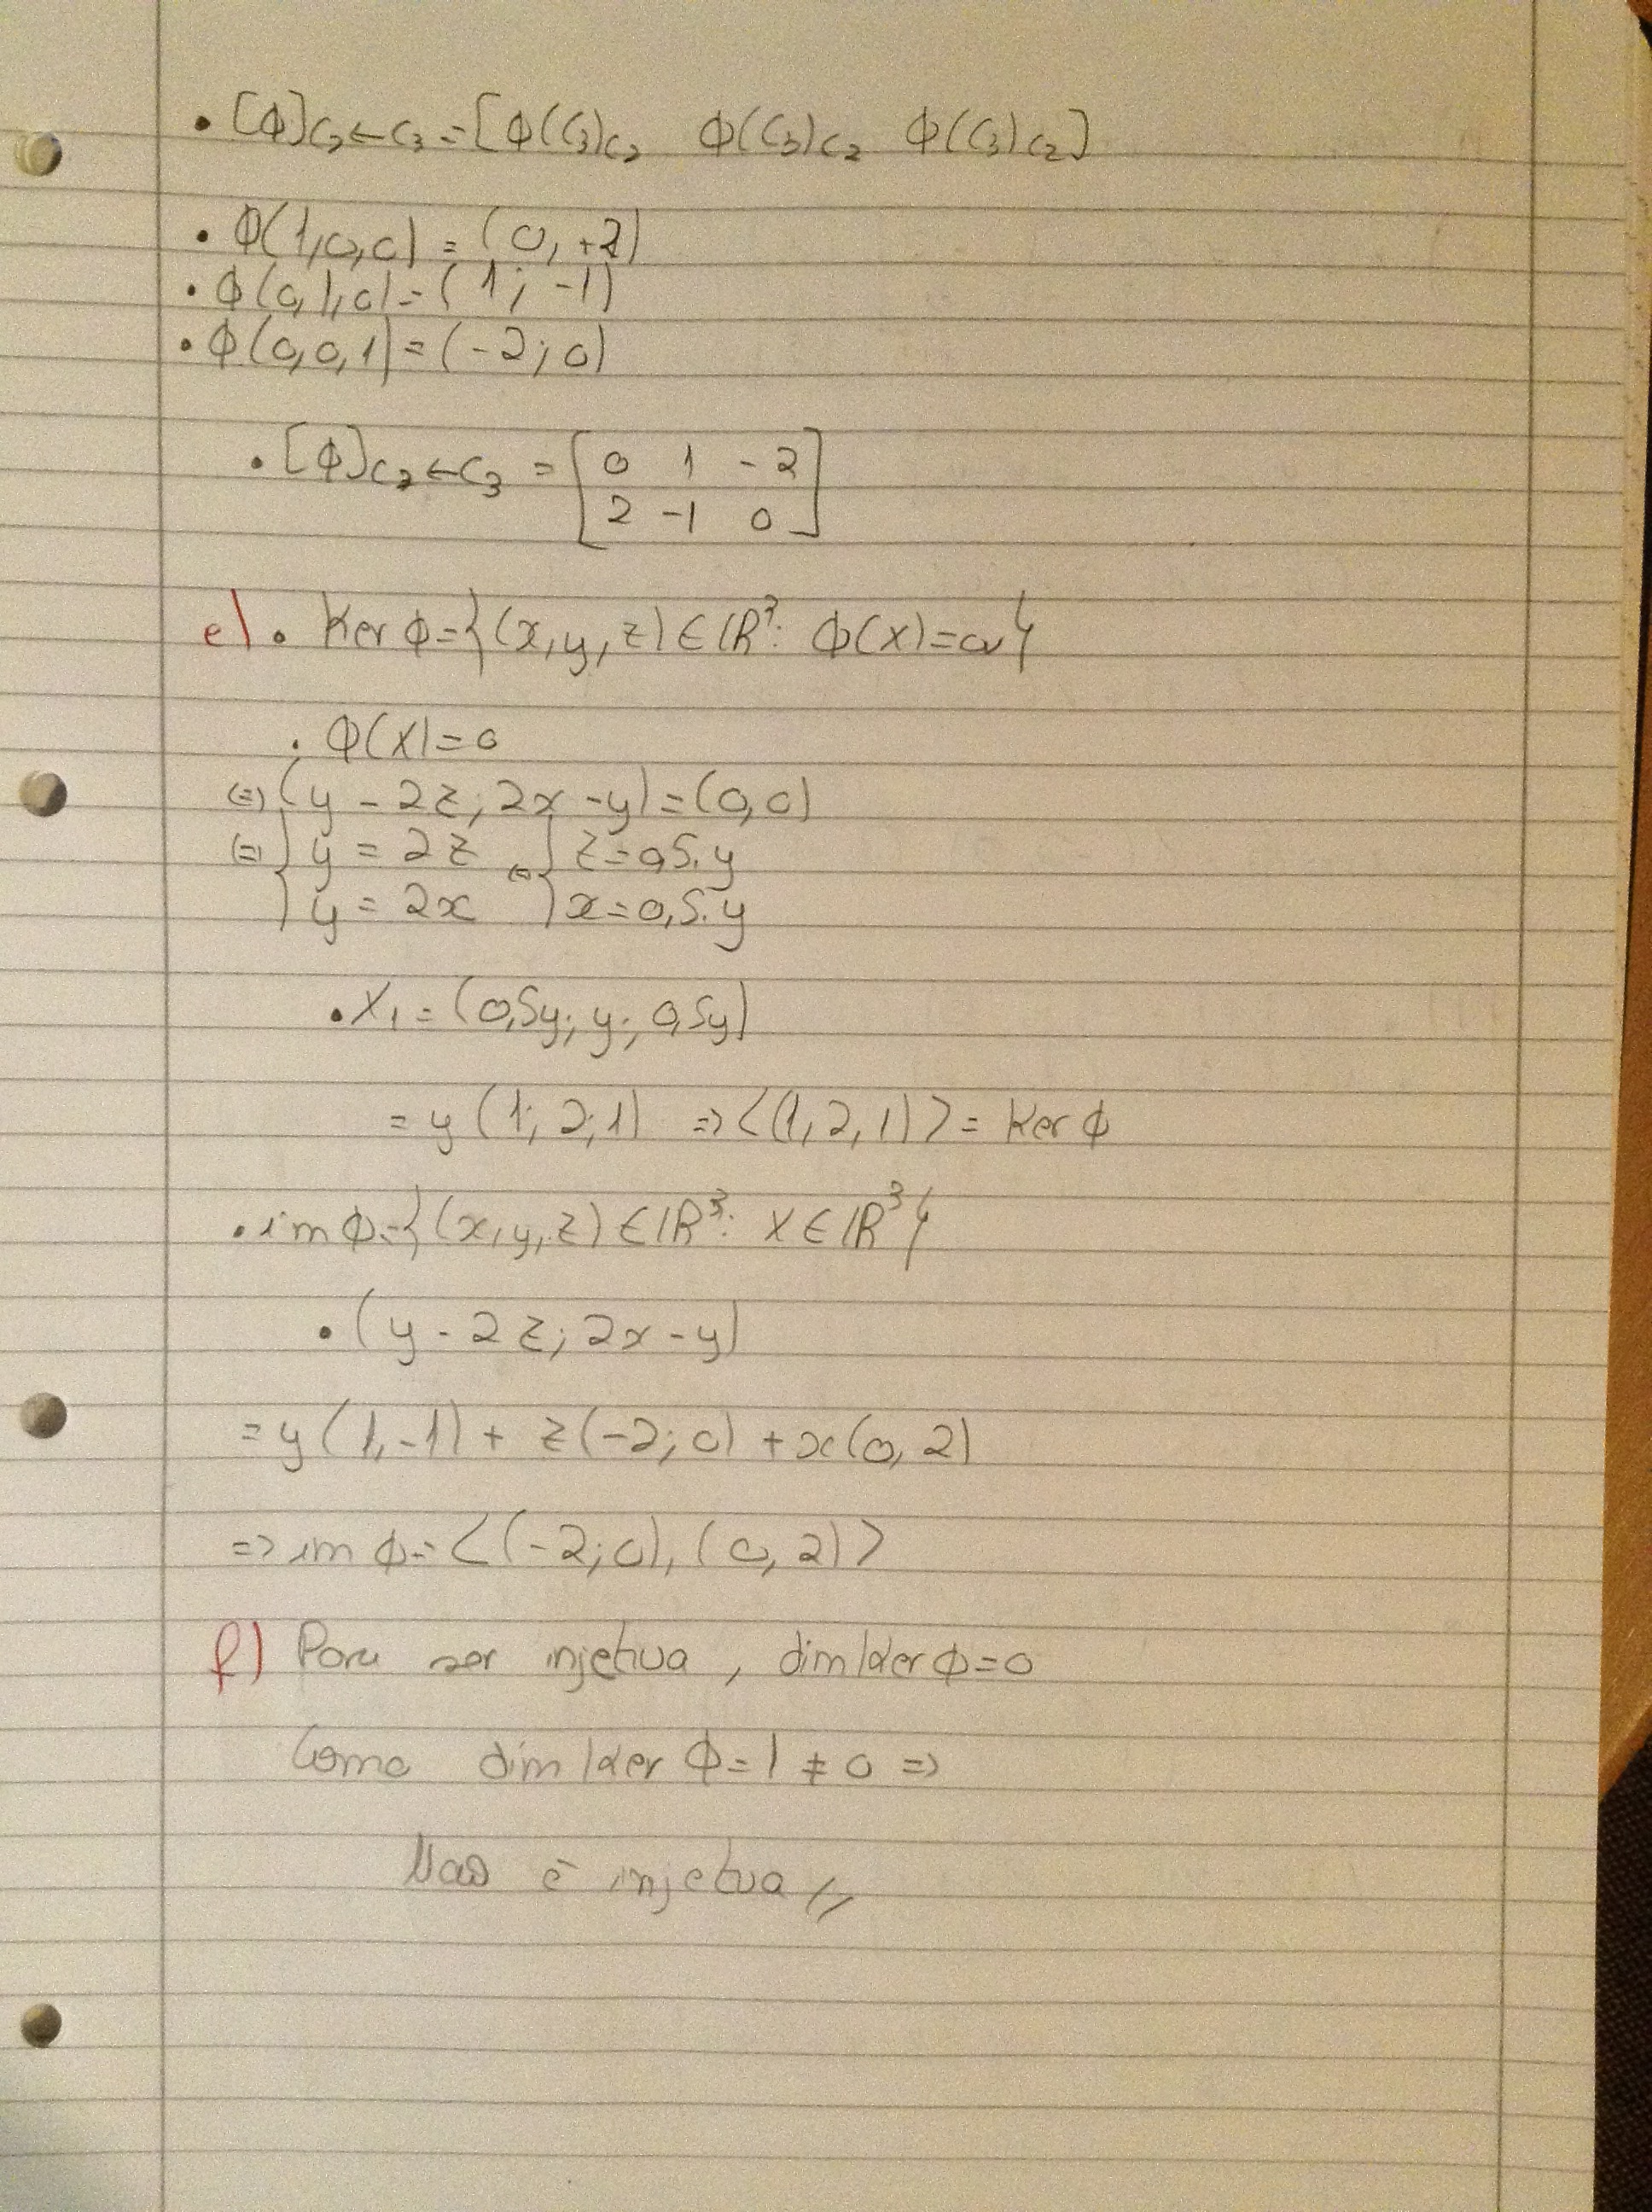 • [ϕ]C₂←C₃ = [ϕ(C₃)C₂ ϕ(C₃)C₂ ϕ(C₃)C₂]
• ϕ(1,0,0) = (0, +2)
• ϕ(0,1,0) = (1; -1)
• ϕ(0,0,1) = (-2; 0)
• [ϕ]C₂←C₃ = [0 1 -2
2 -1 0]
e) • Ker ϕ = {(x,y,z) ∈ IR³: ϕ(X)=0v}
• ϕ(X) = 0
(=) (y - 2z; 2x - y) = (0,0)
(=) { y = 2z (=) { z = 0,5.y
{ y = 2x { x = 0,5.y
• X₁ = (0,5y; y; 0,5y)
= y (1; 2; 1) => <(1,2,1)> = Ker ϕ
• im ϕ = {(x,y,z) ∈ IR³: X ∈ IR³}
• (y - 2z; 2x - y)
= y (1,-1) + z(-2; 0) + x(0, 2)
=> im ϕ = <(-2; 0), (0, 2)>
f) Para ser injetiva, dim Ker ϕ = 0
Como dim Ker ϕ = 1 ≠ 0 =>
Não é injetiva //